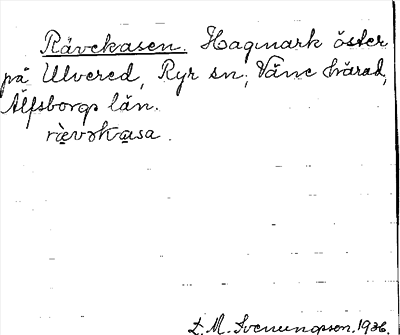 Rävekasen. Hagmark öster
på Ulvered, Ryr sn, Väne härad,
Älfsborgs län.
rævəkasa.
L. M. Svenungsson. 1936.